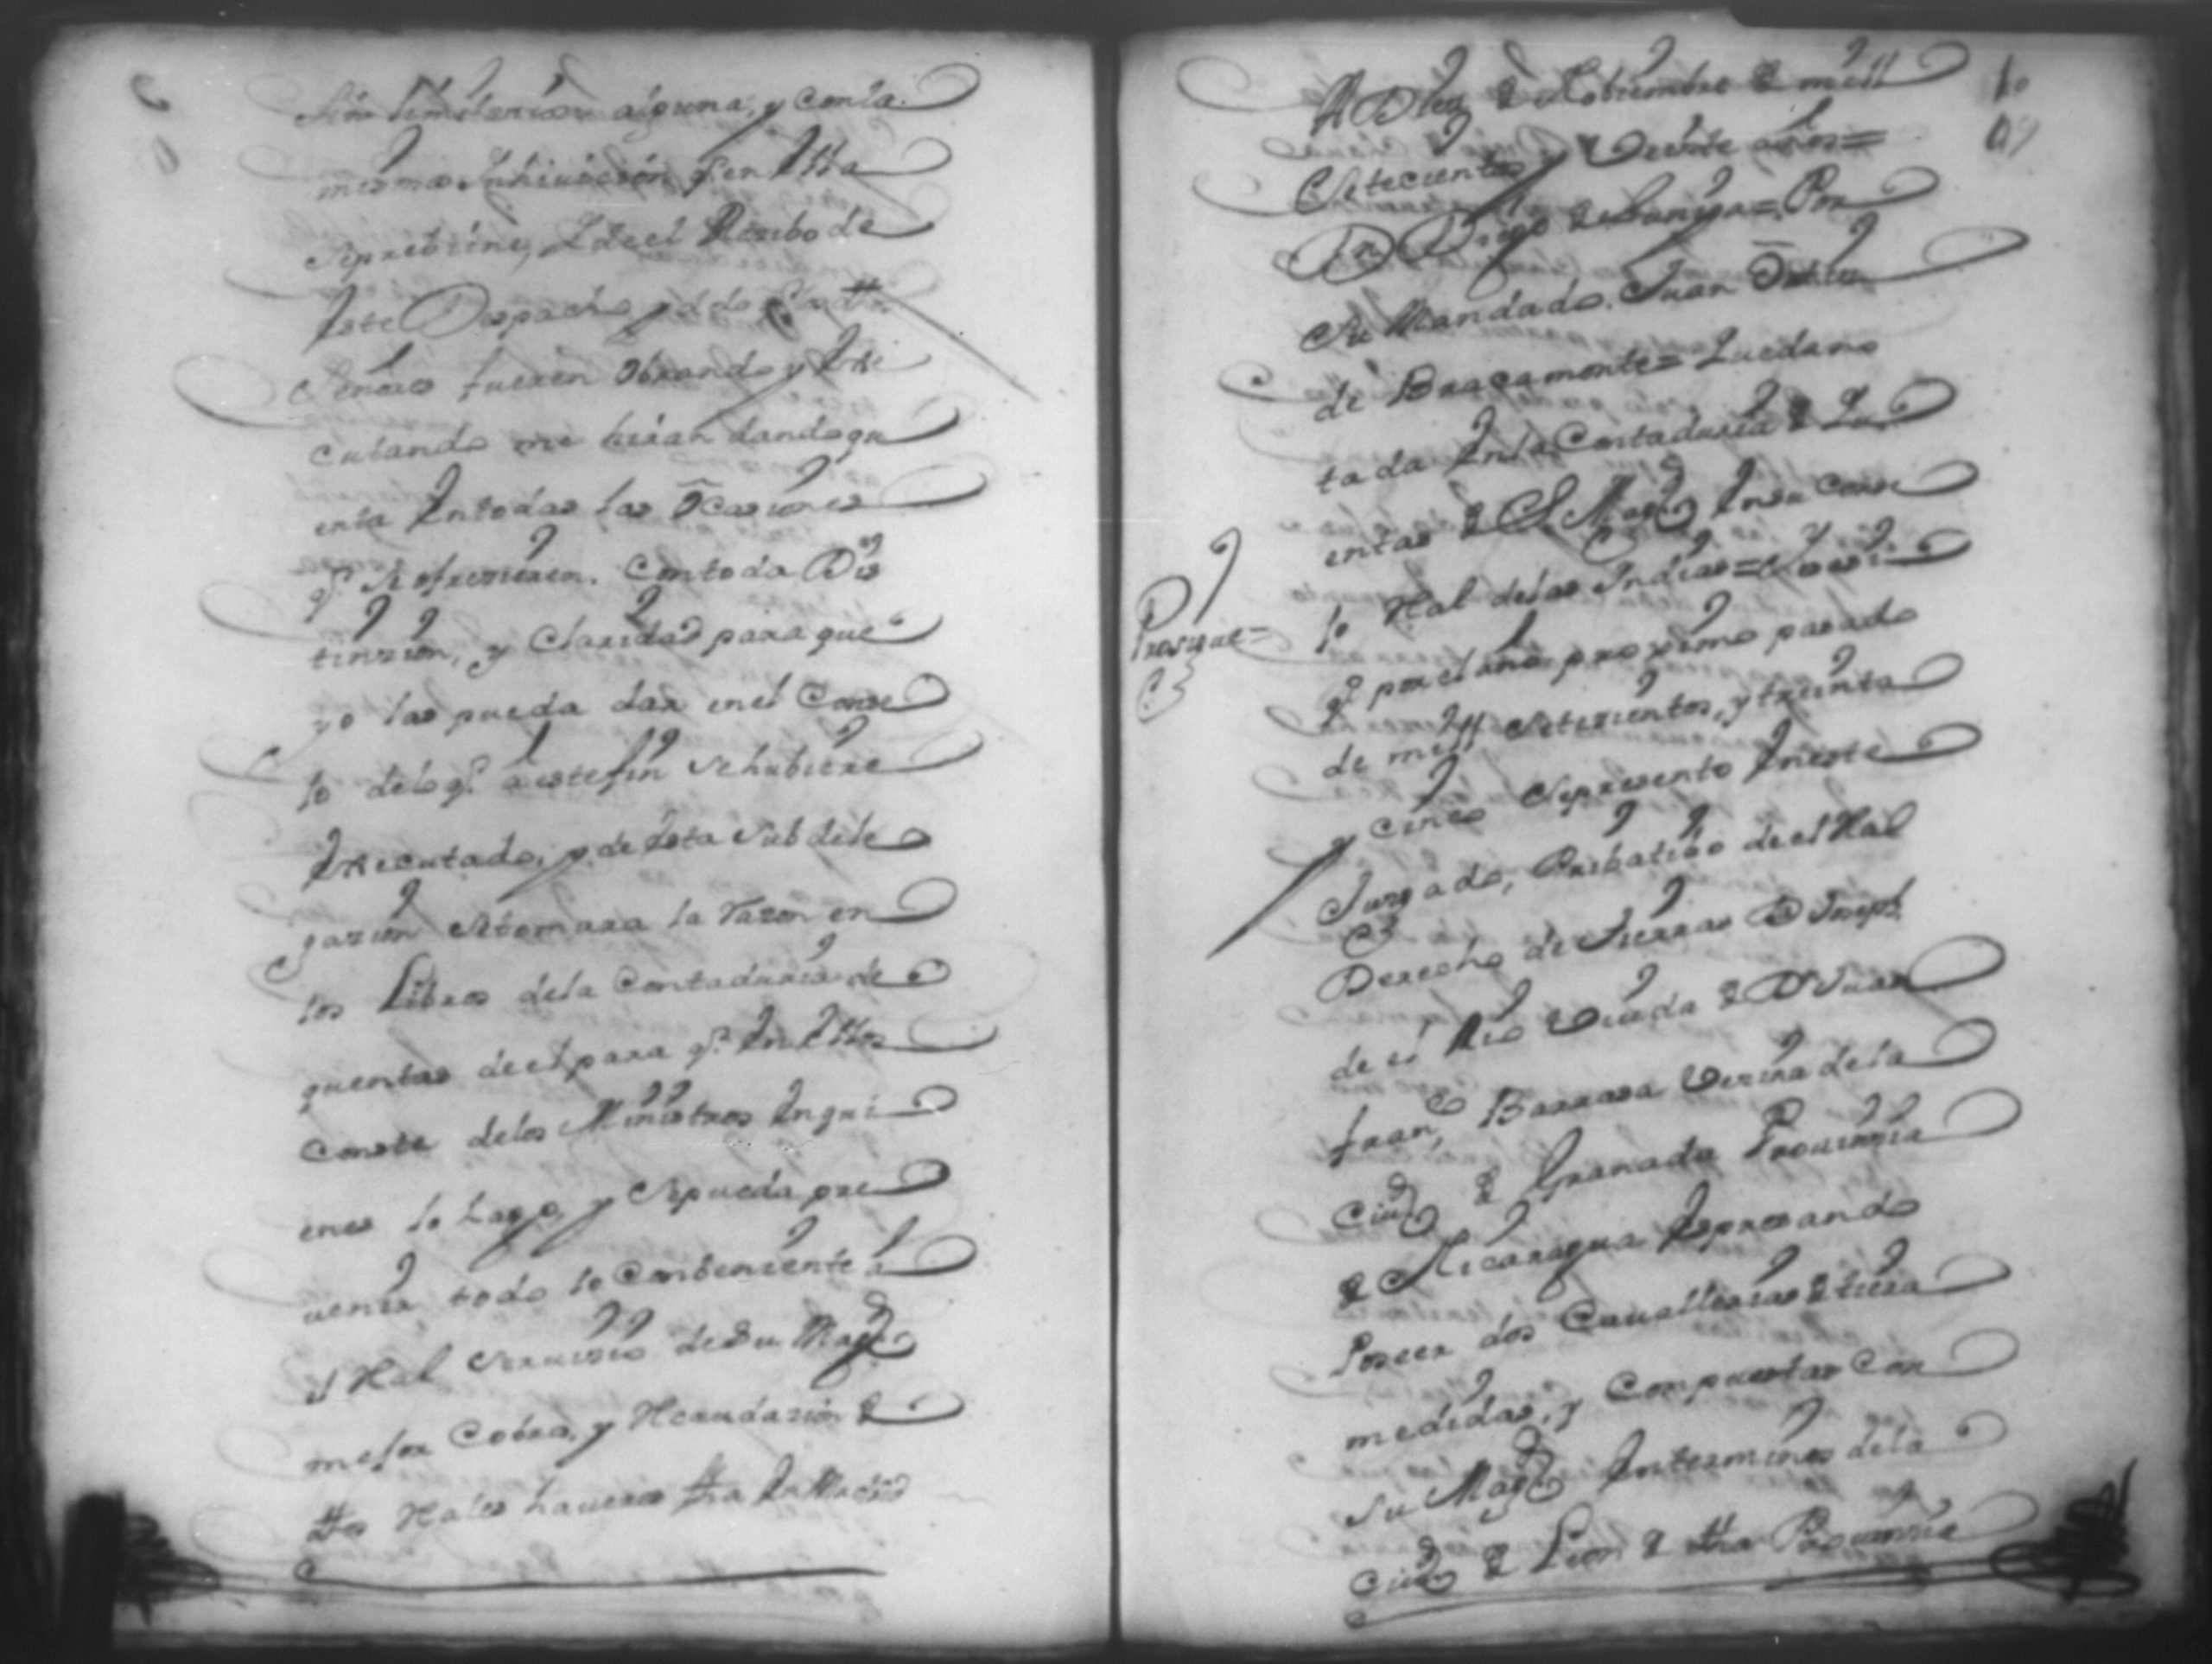 Sin limitacion alguna, y con la
misma Inhiuicion q.e en Ella
se preuiene, Y de el Reciuo de
Este Despacho y de lo q.e dhos
Señores fueren obrando y Exe
cutando me hiran dando qu
enta En todas las Ocasiones
q.e se ofrezieren. Con toda Dis
tinzion, y Claridad para que
yo las pueda dar en el Conse
jo de lo q.e a este fin se hubiere
Executado, y de Esta Subdele
gazion se tomara la razon en
los Libros de la Contaduria de
quentas de el para q.e En Ellos
Conste de los Ministros En qui
enes lo hago, y se pueda pre
uenir todo lo Conbeniente a
el Rl. Seruizio de su Magd.
mejor Cobro, y Recaudazion de
dhos Rales haueres fha En Madrid
A Diez de Nobiembre de mill
Setecientos y Veinte años =
Dn. Diego de Zuniga = Por
su Mandado. Juan Ortiz
de Bracamonte = Quedano
tada En la Contaduria de Qu
entas de S. Magd. En su Conse
jo Ral de las Indias = Y
Prosigue =
q.e por el año proximo pasado
de mill Setezientos, y treinta
y Cinco Se presento En este
Juzgado, Pribatibo de el Ral
Derecho de tierras Da. Joseph.
de el Rio Viuda de Dn. Juan
fran,co Barrasa Vezina de la
Ciud de Granada Prouinzia
de Nicaragua Espresando
Poseer dos Cauallerias de tierra
medidas, y Compuestas Con
su Magd. En terminos de la
Ciud de Leon de dha Prouinzia